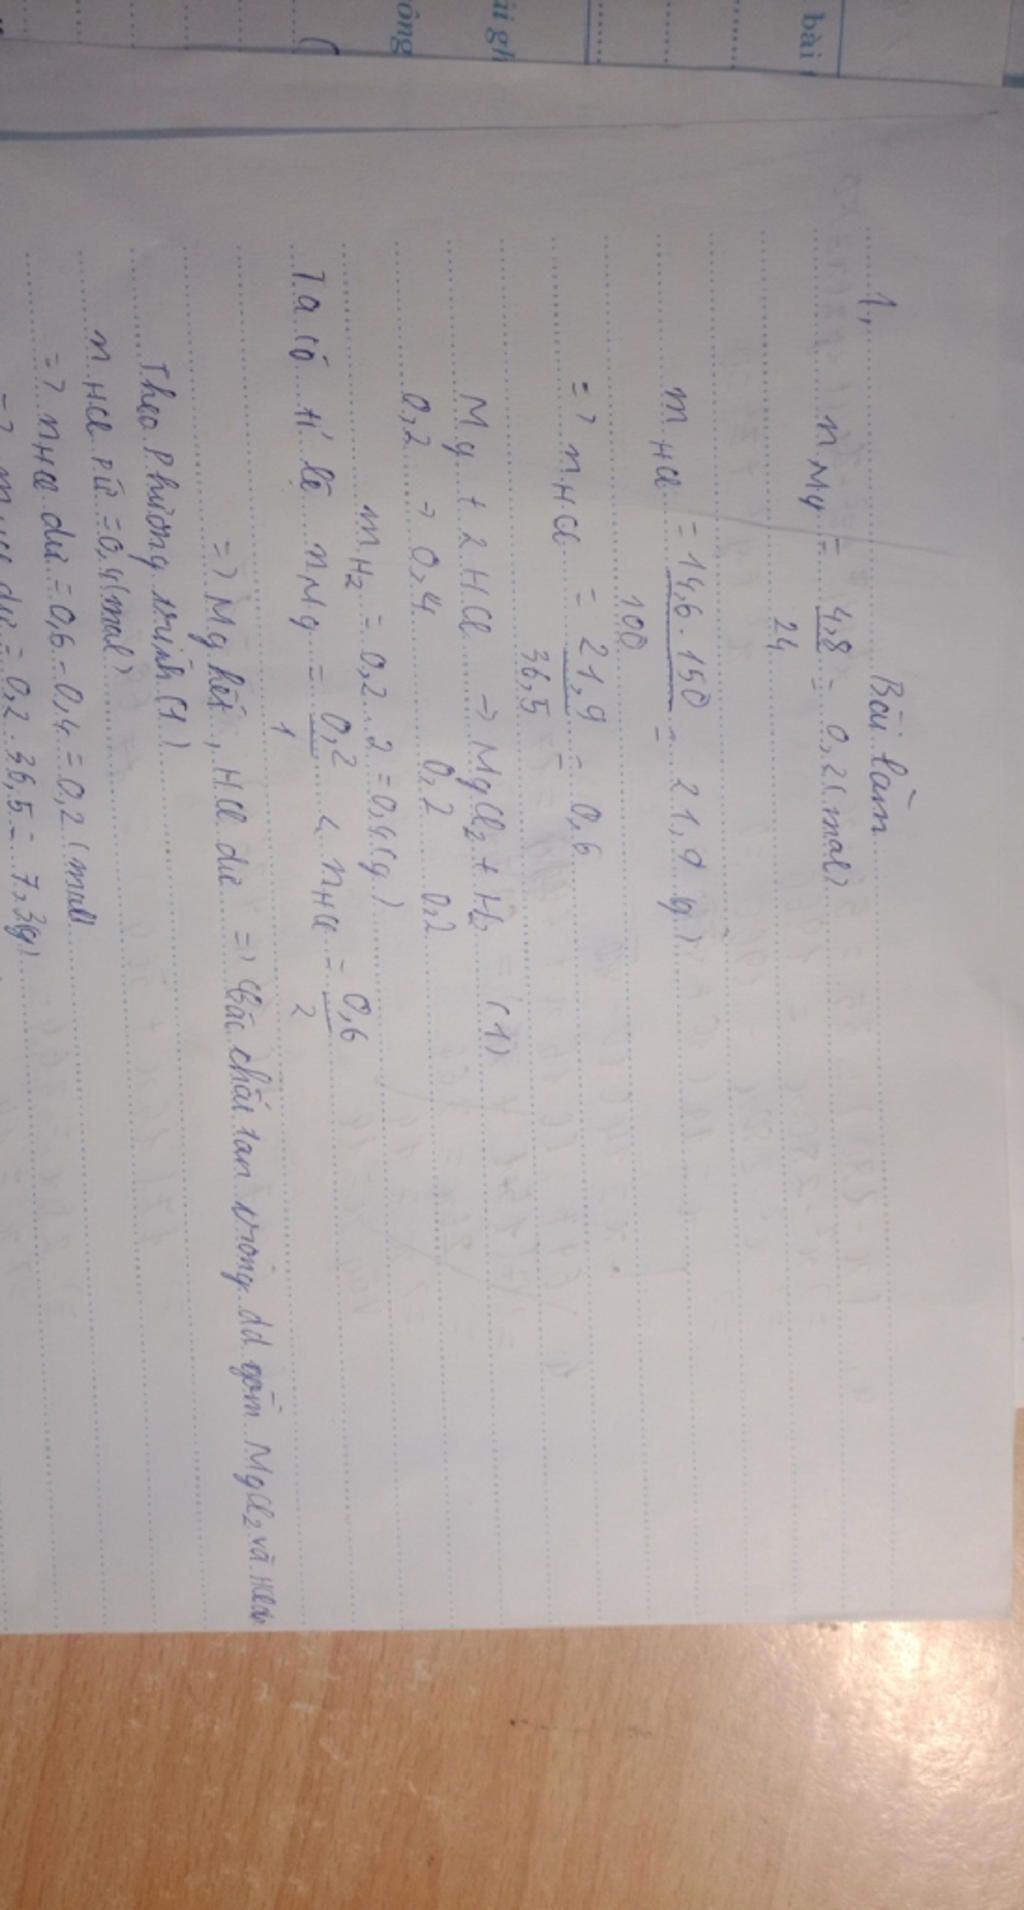 bài
ải gh
ông
Bài làm
1,
n Mg = 4,8 = 0,2 (mol)
24
m HCl = 14,6 . 150 = 21,9 (g)
100
=> n HCl = 21,9 = 0,6
36,5
Mg + 2HCl → MgCl2 + H2 (1)
0,2 → 0,4 0,2 0,2
m H2 = 0,2 . 2 = 0,4 (g)
Ta có tỉ lệ n Mg = 0,2 < n HCl = 0,6
1 2
=> Mg hết, HCl dư => Các chất tan trong dd gồm MgCl2 và HCl dư
Theo phương trình (1)
n HCl pư = 0,4 (mol)
=> n HCl dư = 0,6 - 0,4 = 0,2 (mol)
=> m HCl dư = 0,2 . 36,5 = 7,3 (g)